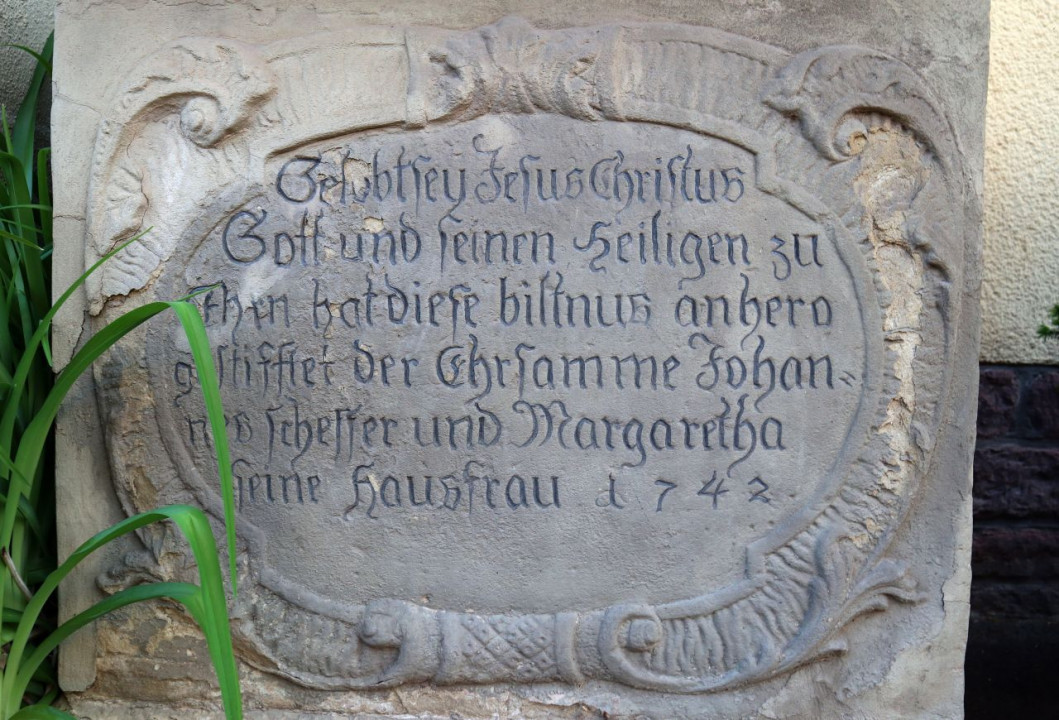 Gelobtsey Jesus Christus
Gott und seinen Heiligen zu
Ehrn hat diese bistnus anhero
gestifftet der Ehrsamme Johan-
nes scheffer und Margaretha
seine Hausfrau 1742